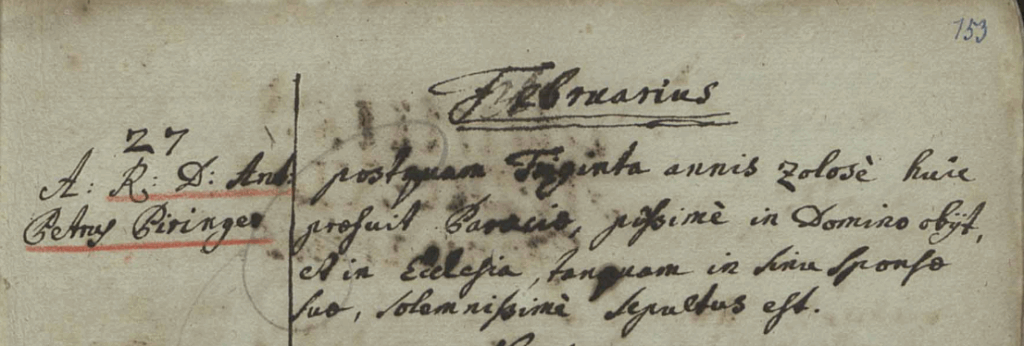 153
Februarius
27
A: R: D: Ant:
Petrus Piringer
postquam Triginta annis zolosè huic
præfuit Parociæ, pissimè in Domino obijt,
et in Ecclesia, tanquam in sinu sponsæ
suæ, solemnissimè sepultus est.